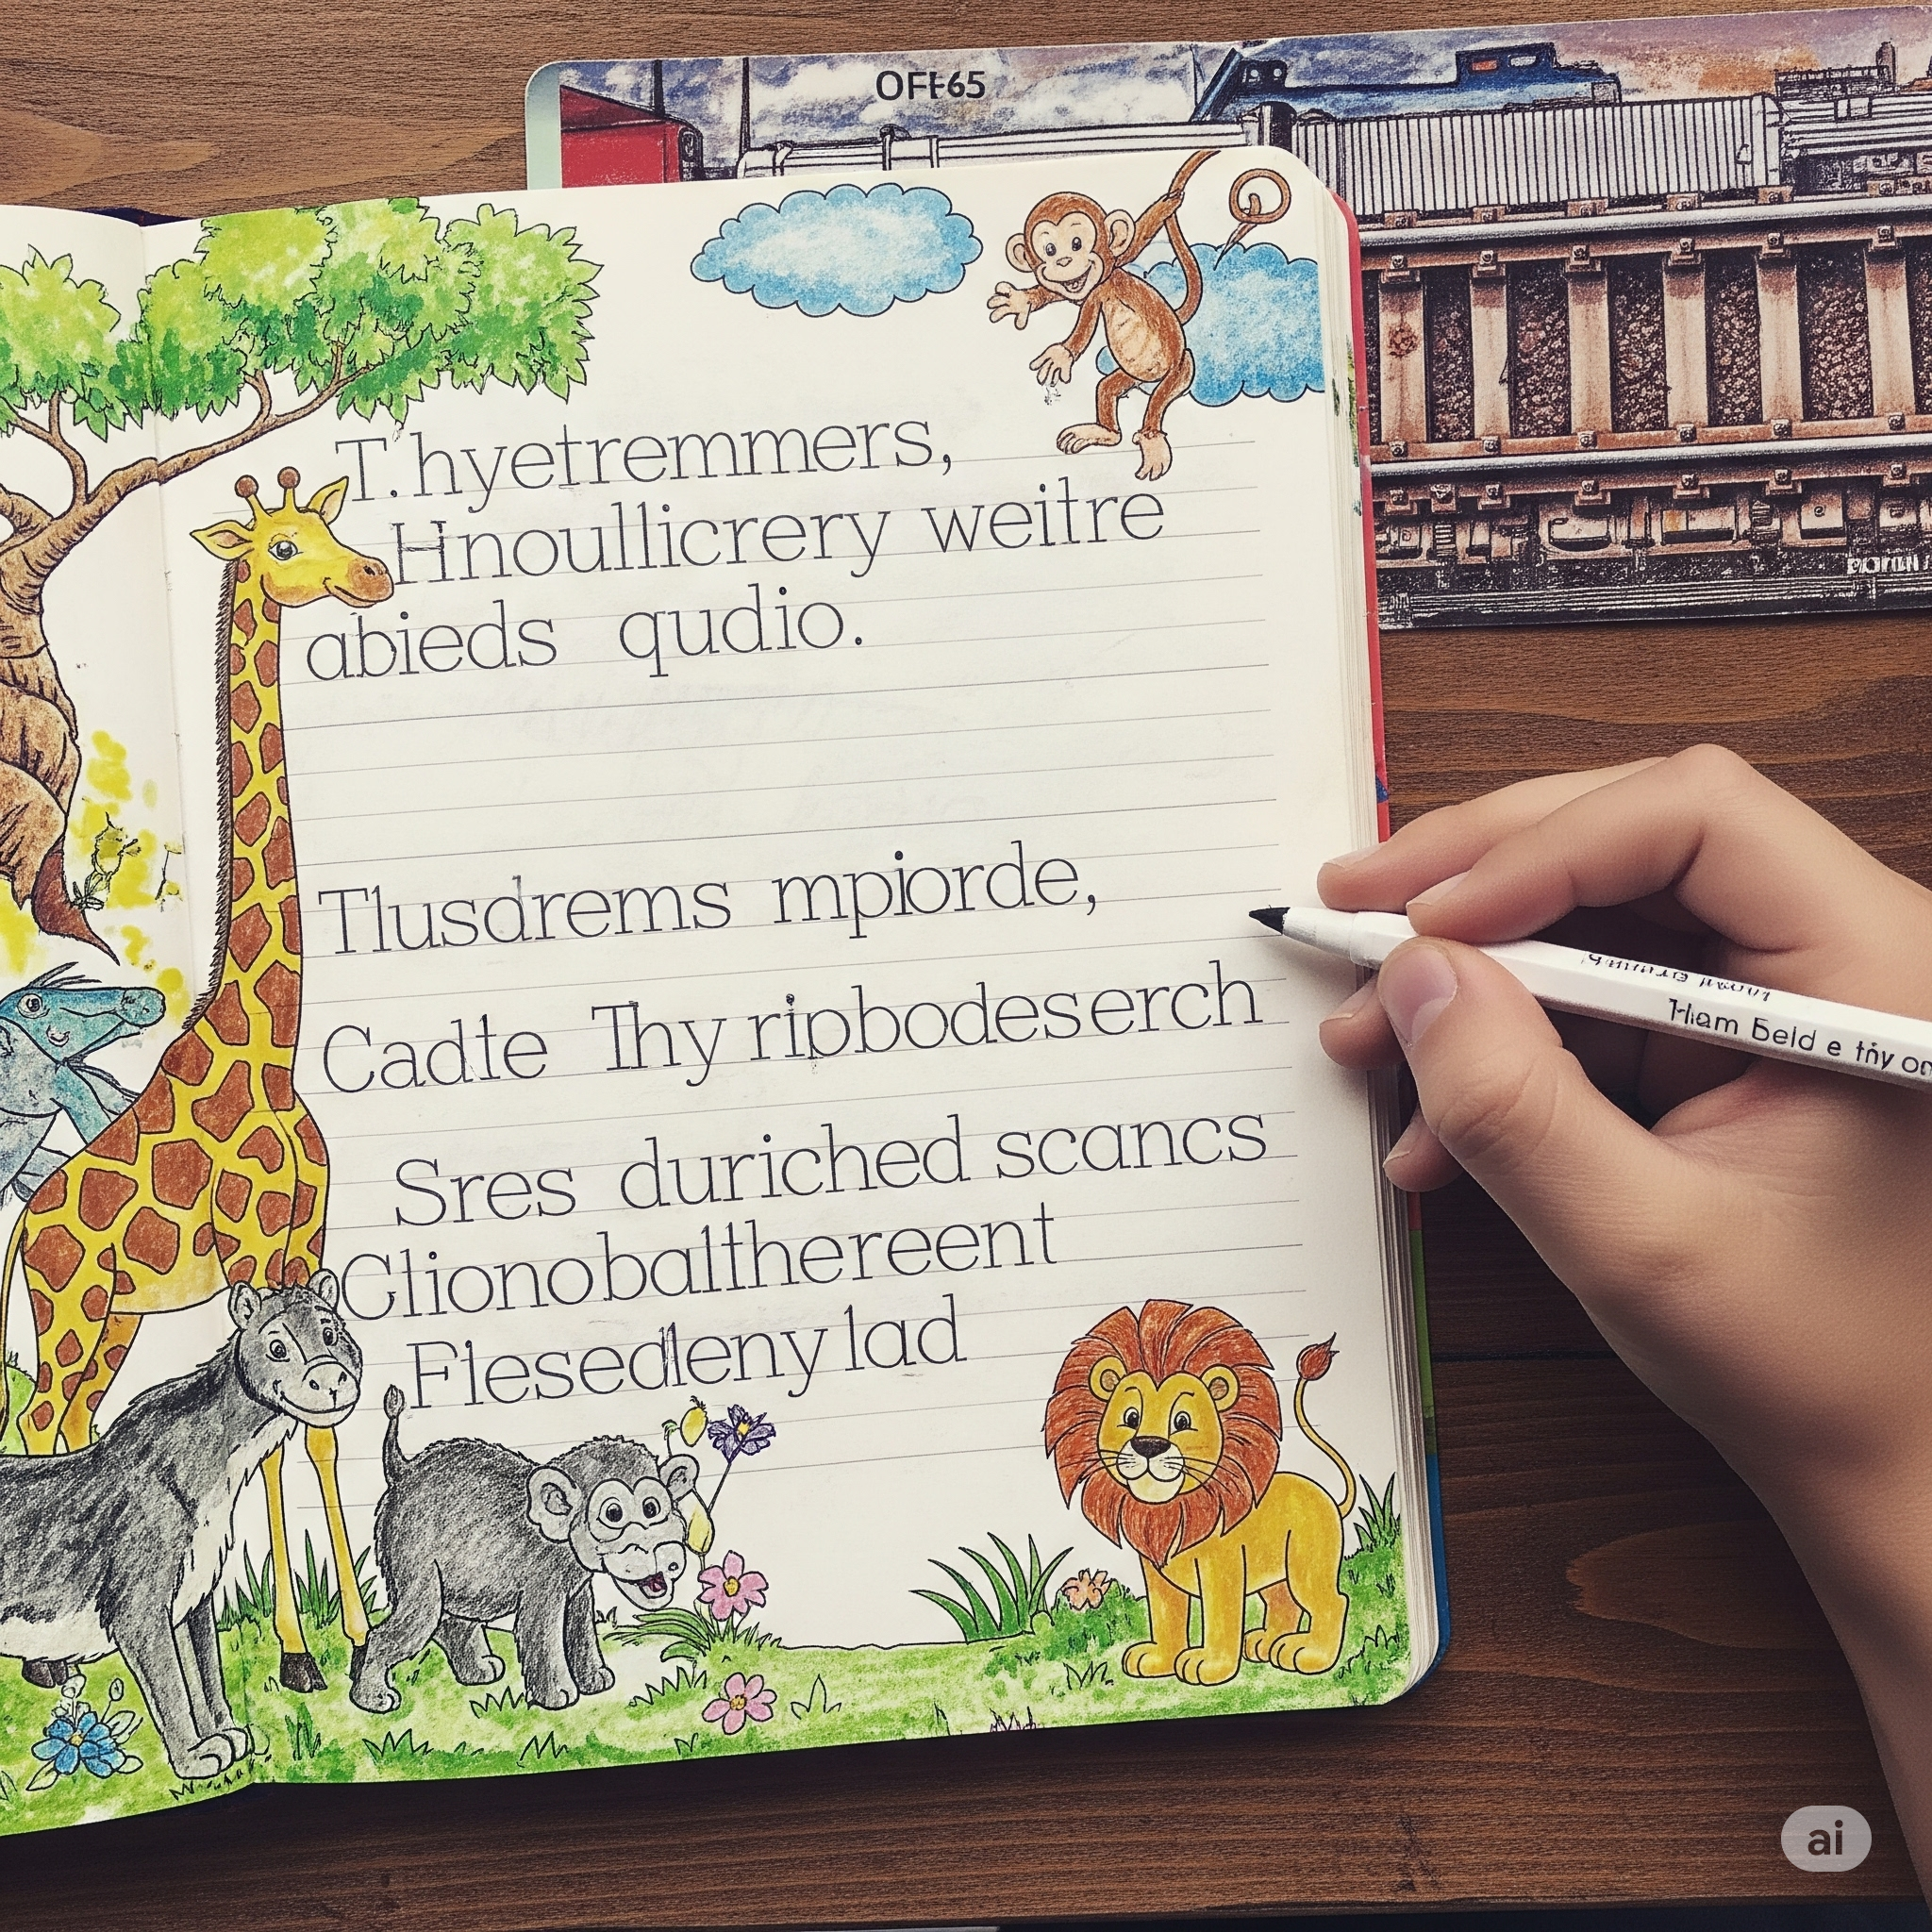 OFF65
T.hyetremmers,
Hnoullicrery weitre
abieds qudio.
Tlusdrems mpiorde,
Cadte Thy ripbodeserch
Sres duriched scancs
Clionobalthereent
Flesedleny lad
Ham Beld e thy on
ai